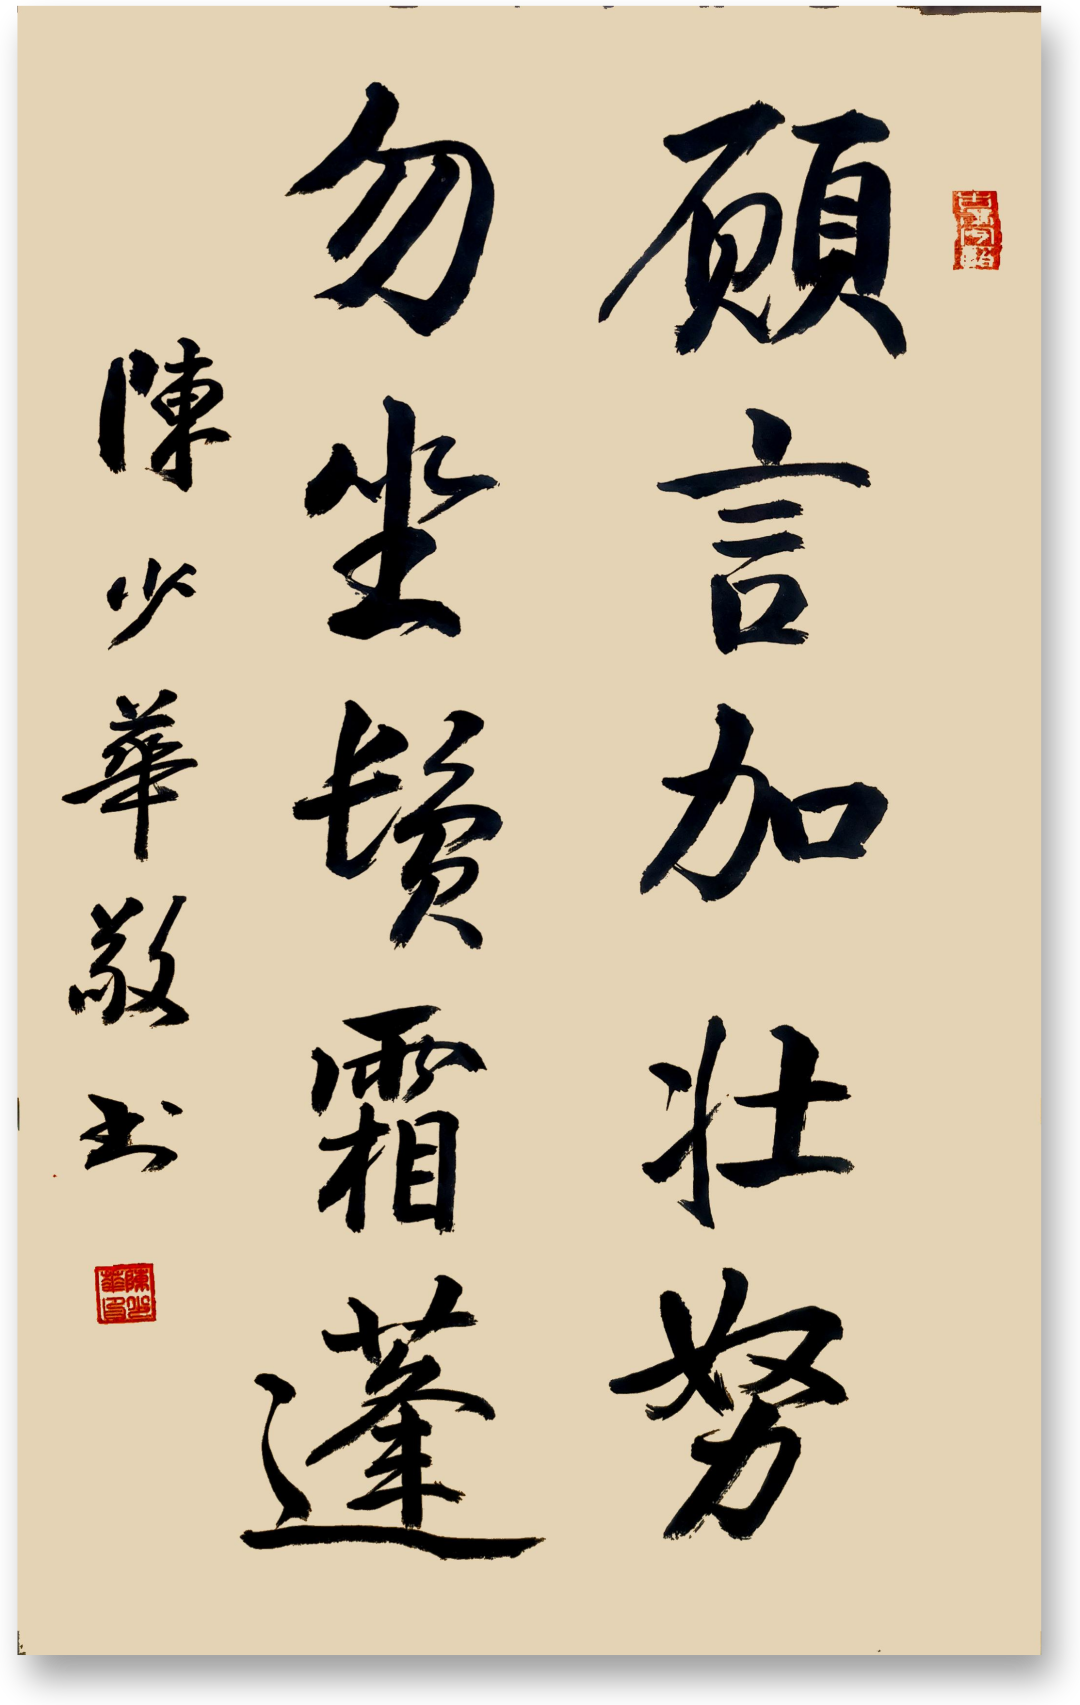 願言加壯努
勿坐鬓霜蓬
陳少華敬书